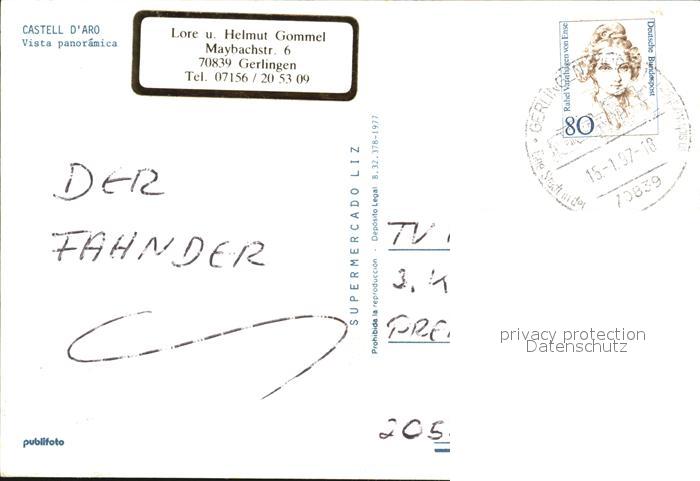 CASTELL D'ARO
Vista panorámica
Lore u. Helmut Gommel
Maybachstr. 6
70839 Gerlingen
Tel. 07156 / 20 53 09
DER
FAHNDER
publifoto
SUPERMERCADO LIZ
Prohibida la reproducción - Depósito Legal B. 32.378-1977
TV
3. K
205
Rahel Varnhagen von Ense
Deutsche Bundespost
80
GERLINGEN
15-1.97-18
Eine Stadt in der
70839
privacy protection
Datenschutz